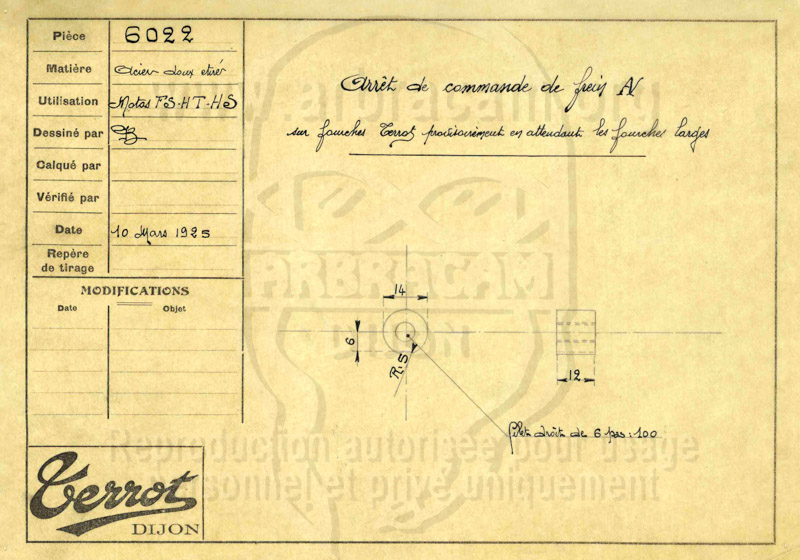 Pièce 6022
Matière Acier doux étiré
Utilisation Motos FS-HT-HS
Dessiné par
Calqué par
Vérifié par
Date 10 Mars 1925
Repère
de tirage
MODIFICATIONS
Date Objet
Arrêt de commande de frein AV
sur fourches Terrot provisoirement en attendant les fourches larges
14
6
R.5
12
Filet droit de 6 pas:100
ARBRACAM
DIJON
Reproduction autorisée pour usage
personnel et privé uniquement
Terrot
DIJON